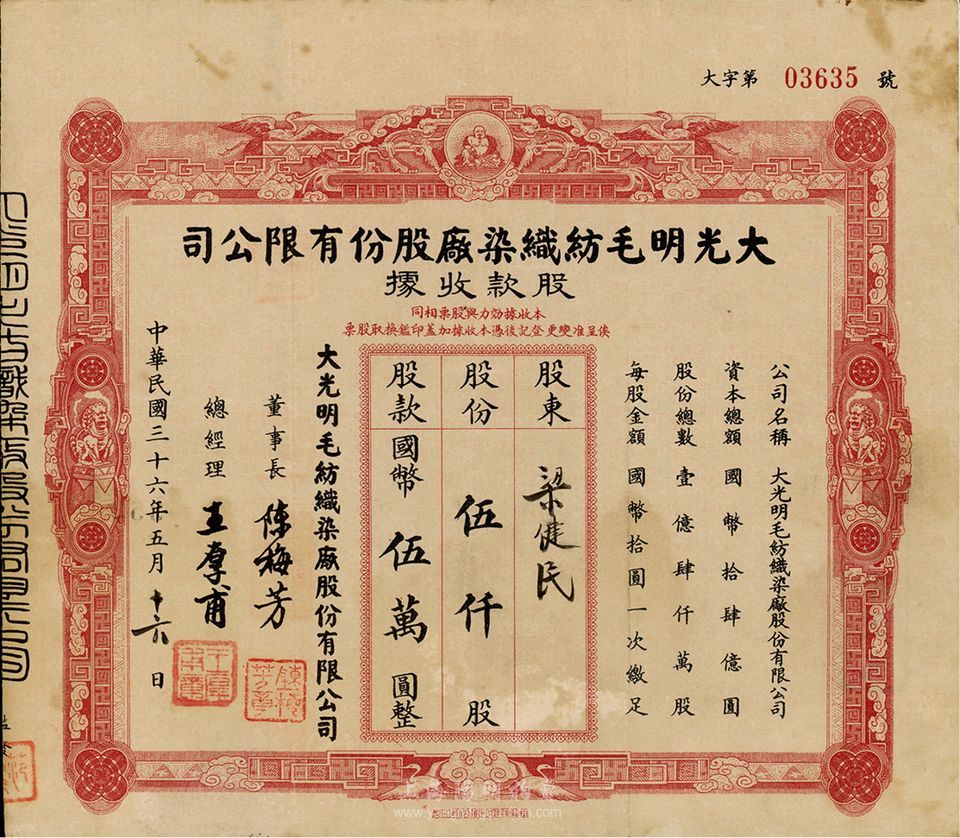 大字第 03635 號
大光明毛紡織染廠股份有限公司
股款收據
本收據効力與股票相同
俟呈准變更登記後憑本收據加蓋印鑑換取股票
公司名稱 大光明毛紡織染廠股份有限公司
資本總額 國幣拾肆億圓
股份總數 壹億肆仟萬股
每股金額 國幣拾圓一次繳足
股東 梁健民
股份 伍仟股
股款 國幣伍萬圓整
大光明毛紡織染廠股份有限公司
董事長 陳梅芳
總經理 王厚甫
中華民國三十六年五月十六日